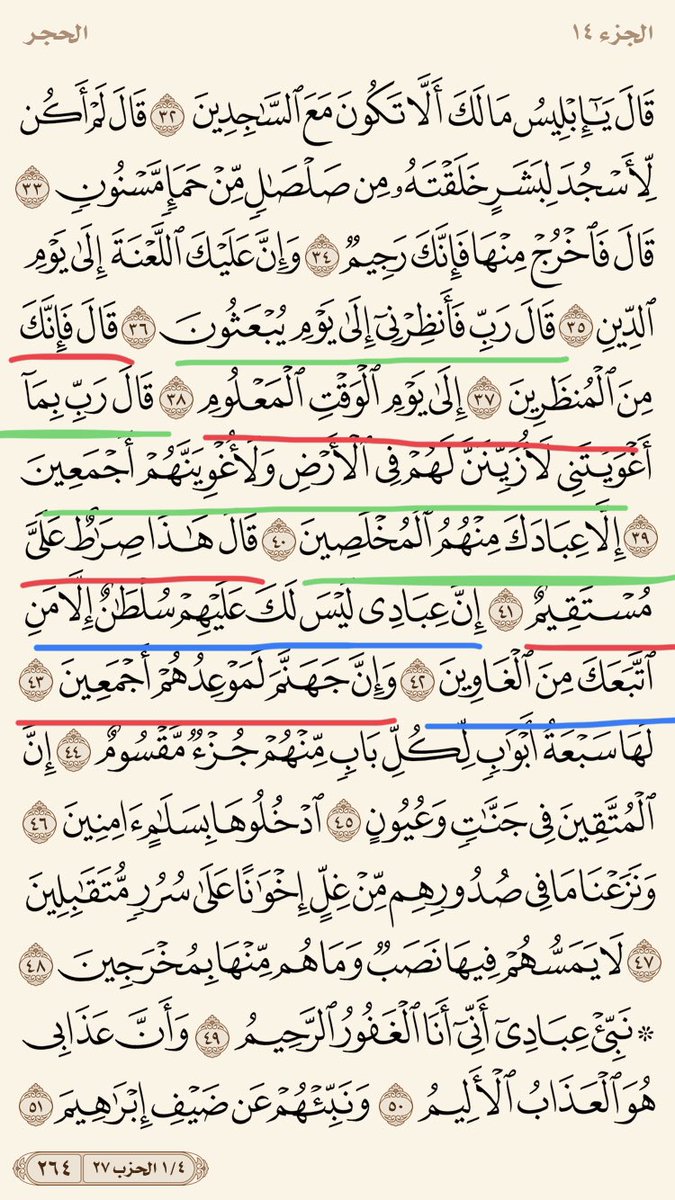 الجزء ١٤ الحجر
قَالَ يَـٰٓإِبۡلِيسُ مَا لَكَ أَلَّا تَكُونَ مَعَ ٱلسَّـٰجِدِينَ ٣٢ قَالَ لَمۡ أَكُن
لِّأَسۡجُدَ لِبَشَرٍ خَلَقۡتَهُۥ مِن صَلۡصَـٰلٖ مِّنۡ حَمَإٖ مَّسۡنُونٖ ٣٣
قَالَ فَٱخۡرُجۡ مِنۡهَا فَإِنَّكَ رَجِيمٞ ٣٤ وَإِنَّ عَلَيۡكَ ٱللَّعۡنَةَ إِلَىٰ يَوۡمِ
ٱلدِّينِ ٣٥ قَالَ رَبِّ فَأَنظِرۡنِيٓ إِلَىٰ يَوۡمِ يُبۡعَثُونَ ٣٦ قَالَ فَإِنَّكَ
مِنَ ٱلۡمُنظَرِينَ ٣٧ إِلَىٰ يَوۡمِ ٱلۡوَقۡتِ ٱلۡمَعۡلُومِ ٣٨ قَالَ رَبِّ بِمَآ
أَغۡوَيۡتَنِي لَأُزَيِّنَنَّ لَهُمۡ فِي ٱلۡأَرۡضِ وَلَأُغۡوِيَنَّهُمۡ أَجۡمَعِينَ
٣٩ إِلَّا عِبَادَكَ مِنۡهُمُ ٱلۡمُخۡلَصِينَ ٤٠ قَالَ هَـٰذَا صِرَٰطٌ عَلَيَّ
مُسۡتَقِيمٌ ٤١ إِنَّ عِبَادِي لَيۡسَ لَكَ عَلَيۡهِمۡ سُلۡطَـٰنٌ إِلَّا مَنِ
ٱتَّبَعَكَ مِنَ ٱلۡغَاوِينَ ٤٢ وَإِنَّ جَهَنَّمَ لَمَوۡعِدُهُمۡ أَجۡمَعِينَ ٤٣
لَهَا سَبۡعَةُ أَبۡوَٰبٖ لِّكُلِّ بَابٖ مِّنۡهُمۡ جُزۡءٞ مَّقۡسُومٌ ٤٤ إِنَّ
ٱلۡمُتَّقِينَ فِي جَنَّـٰتٖ وَعُيُونٍ ٤٥ ٱدۡخُلُوهَا بِسَلَـٰمٍ ءَامِنِينَ ٤٦
وَنَزَعۡنَا مَا فِي صُدُورِهِم مِّنۡ غِلٍّ إِخۡوَٰنًا عَلَىٰ سُرُرٖ مُّتَقَـٰبِلِينَ
٤٧ لَا يَمَسُّهُمۡ فِيهَا نَصَبٞ وَمَا هُم مِّنۡهَا بِمُخۡرَجِينَ ٤٨
۞ نَبِّئۡ عِبَادِيٓ أَنِّيٓ أَنَا ٱلۡغَفُورُ ٱلرَّحِيمُ ٤٩ وَأَنَّ عَذَابِي
هُوَ ٱلۡعَذَابُ ٱلۡأَلِيمُ ٥٠ وَنَبِّئۡهُمۡ عَن ضَيۡفِ إِبۡرَٰهِيمَ ٥١
١/٤ الحزب ٢٧ ٢٦٤